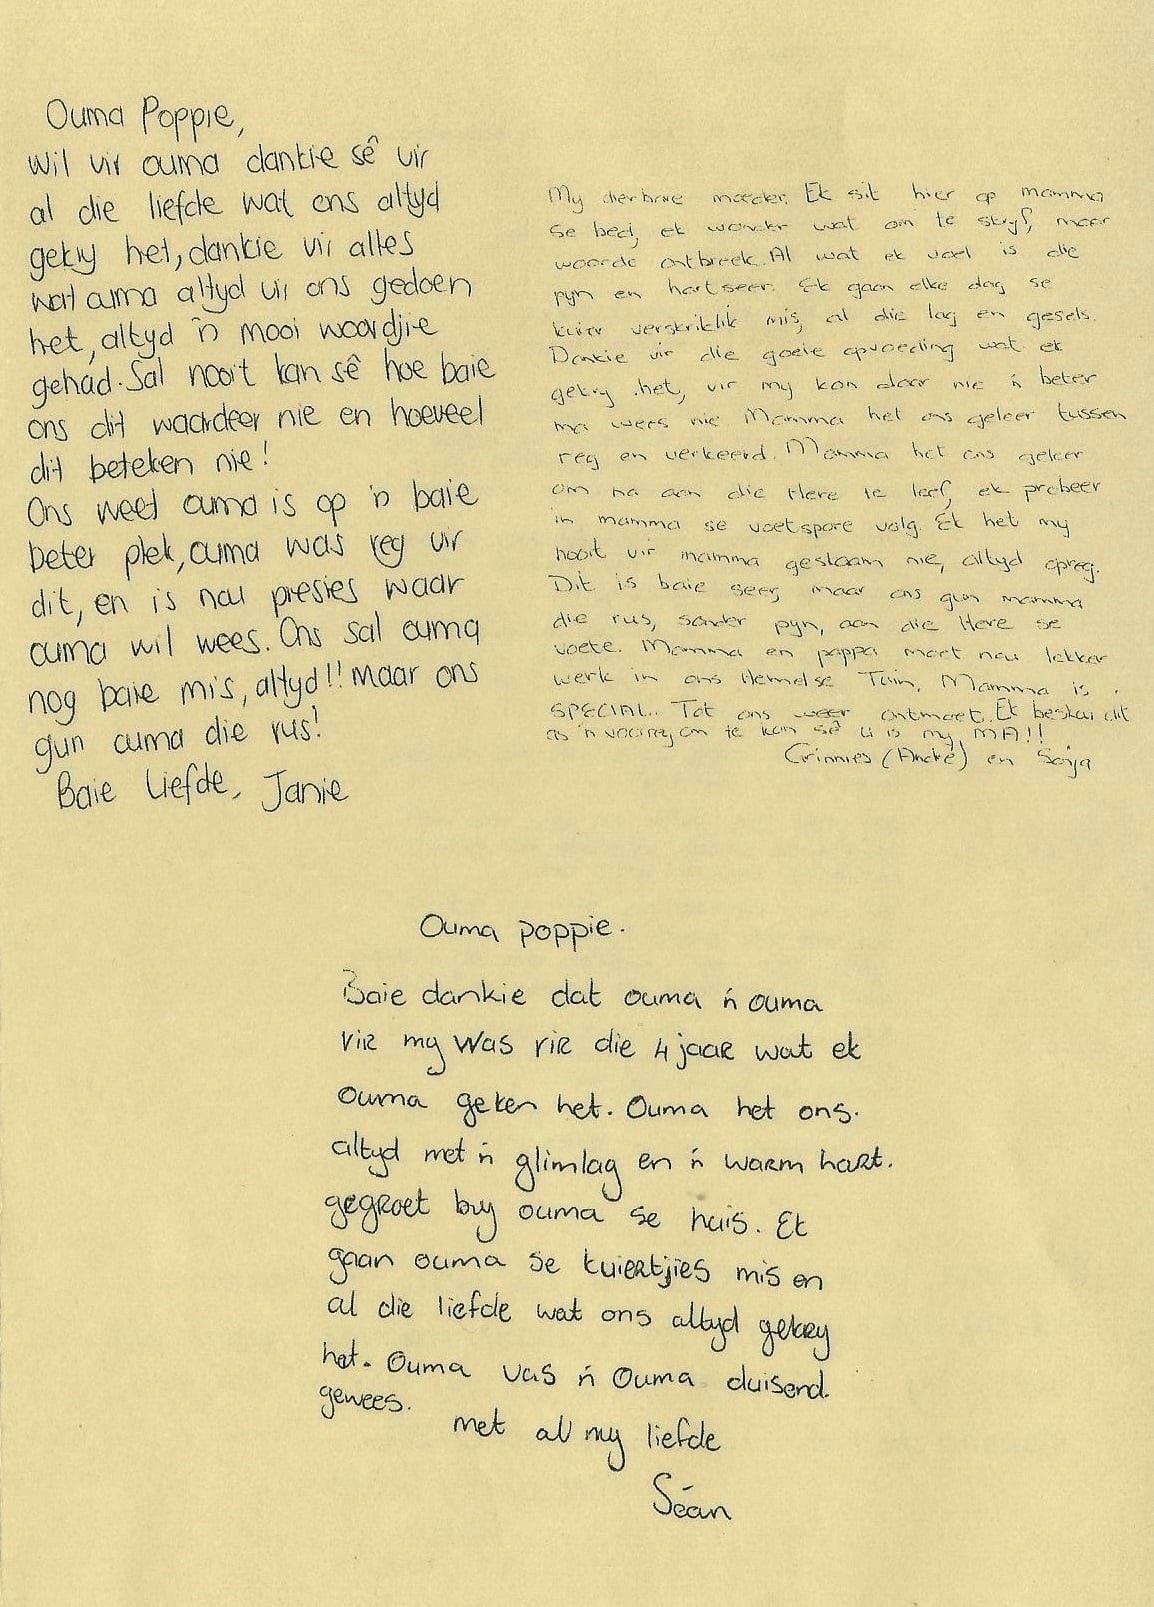 Ouma Poppie,
wil vir ouma dankie sê vir
al die liefde wat ons altyd
gekry het, dankie vir alles
wat ouma altyd vir ons gedoen
het, altyd 'n mooi woordjie
gehad. Sal nooit kan sê hoe baie
ons dit waardeer nie en hoeveel
dit beteken nie!
Ons weet ouma is op 'n baie
beter plek, ouma was reg vir
dit, en is nou presies waar
ouma wil wees. Ons sal ouma
nog baie mis, altyd!! maar ons
gun ouma die rus!
Baie Liefde, Janie
My dierbare moeder. Ek sit hier op mamma
se bed, ek wonder wat om te skryf, maar
woorde ontbreek. Al wat ek voel is die
pyn en hartseer. Ek gaan elke dag se
kuier verskriklik mis, al die lag en gesels.
Dankie vir die goeie opvoeding wat ek
gekry het, vir my kon daar nie 'n beter
ma wees nie Mamma het ons geleer tussen
reg en verkeerd. Mamma het ons geleer
om na aan die Here te leef, ek probeer
in mamma se voetspore volg. Ek het my
nooit vir mamma geskaam nie, altyd opreg.
Dit is baie seer, maar ons gun mamma
die rus, sonder pyn, aan die Here se
voete. Mamma en pappa moet nou lekker
werk in ons Hemelse Tuin. Mamma is
SPECIAL.. Tot ons weer ontmoet. Ek beskou dit
as 'n voorreg om te kan sê u is my MA!!
(André) en Sonja
Ouma poppie.
Baie dankie dat ouma 'n ouma
vir my was vir die 4 jaar wat ek
ouma geken het. Ouma het ons.
altyd met 'n glimlag en 'n warm hart.
gegroet by ouma se huis. Ek
gaan ouma se kuiertjies mis en
al die liefde wat ons altyd gekry
het. Ouma vas 'n Ouma duisend.
gewees.
met al my liefde
Séan